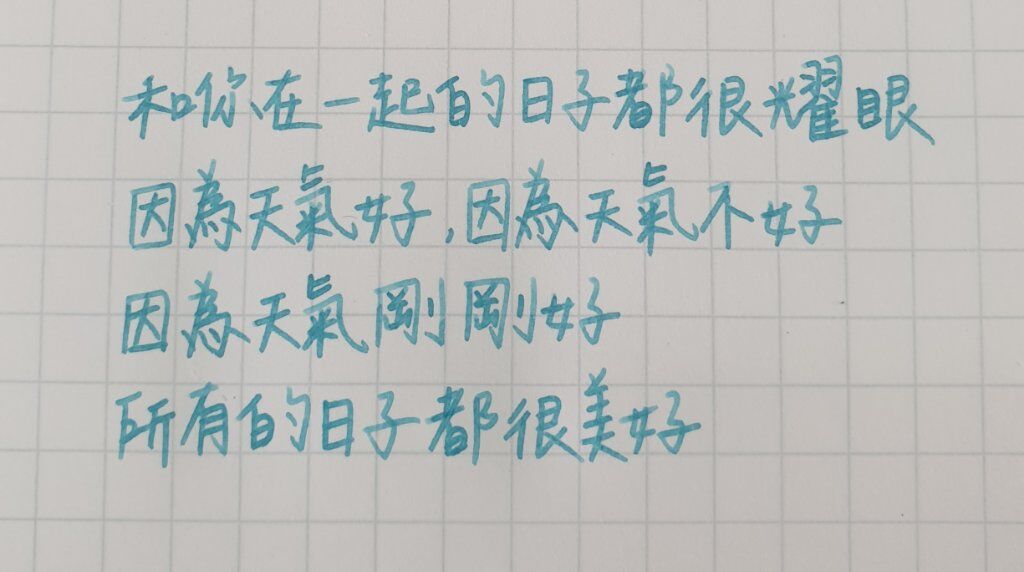 和你在一起的日子都很耀眼
因為天氣好,因為天氣不好
因為天氣剛剛好
所有的日子都很美好